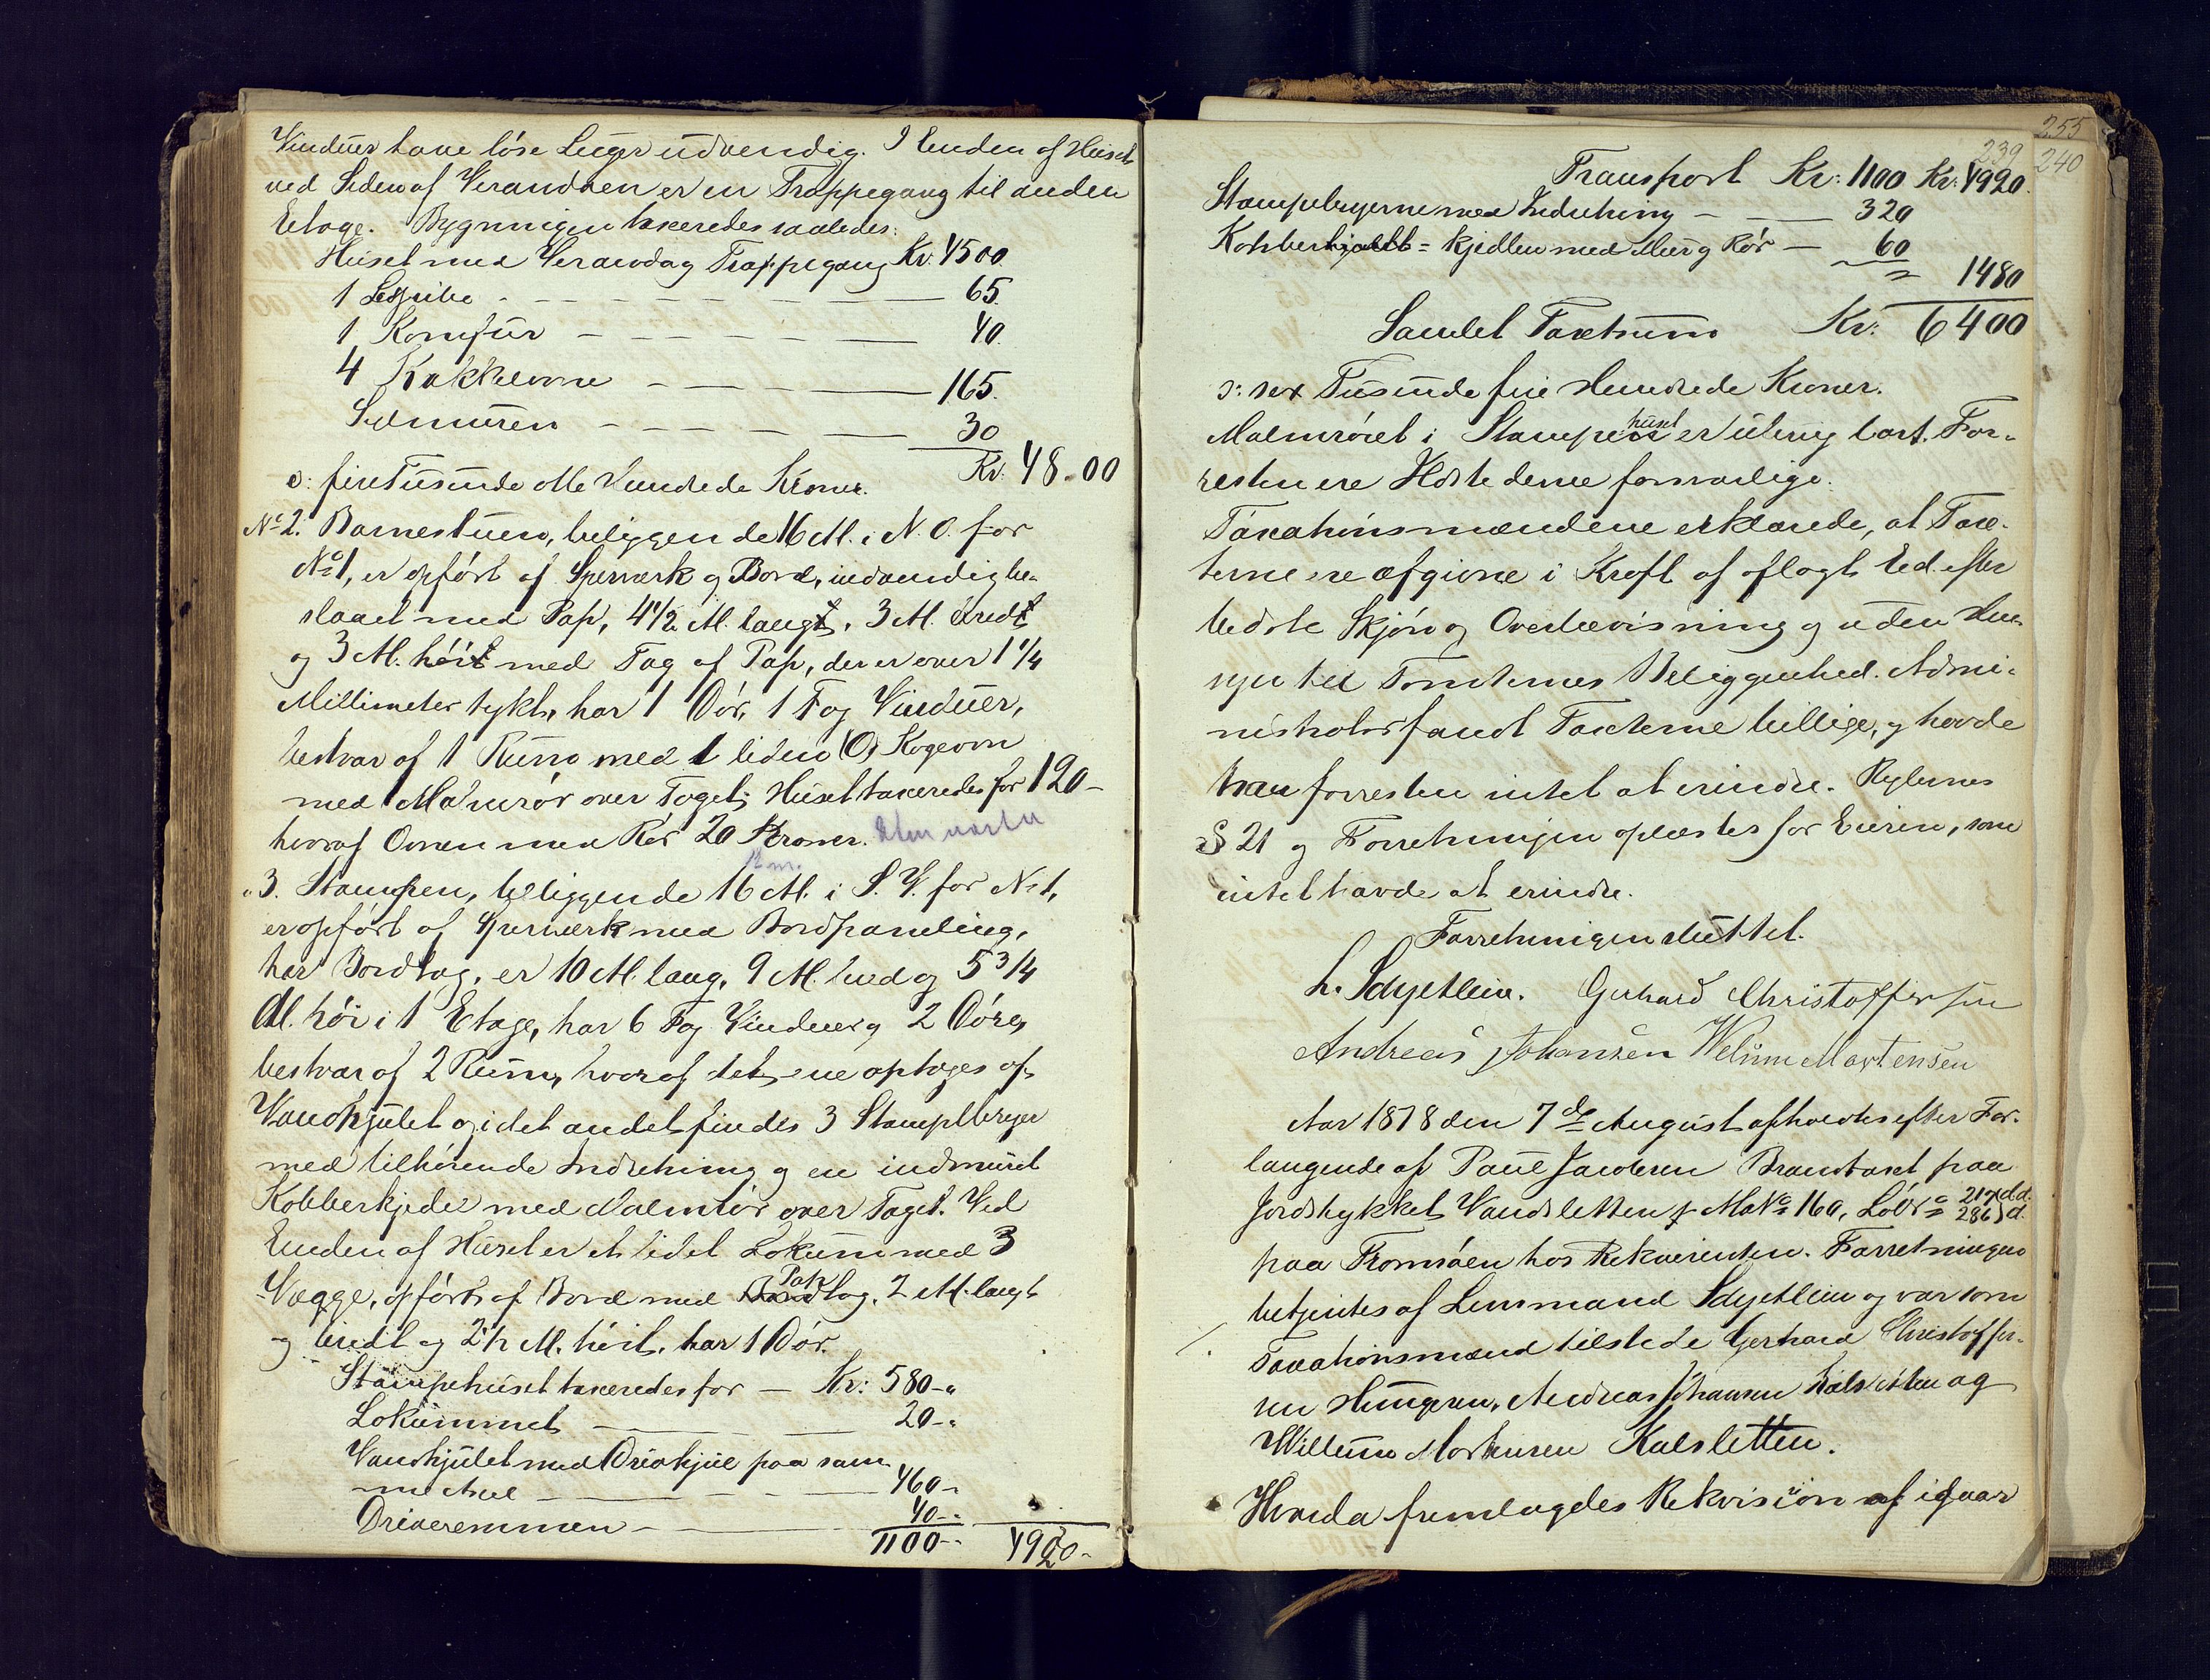 Vinduer have løse Luger udvendig. I Enden af Huset
ved Siden af Verandaen er en Trappegang til anden
Etage. Bygningen taxeredes saaledes:
Huset med Veranda og Trappegang Kr. 4500
1 65.
1 Komfur 40.
4 Kakkelovne 165.
muren 30
ɔ: fire Tusinde otte Hundrede Kroner. Kr. 4800
No 2. Barnestuen, beliggende 16 M. i N. O. for
No 1, er opført af Sperværk og Bord, indvendig be-
slaaet med Pap, 4 1/2 M. langt, 3 M. bredt
og 3 M. høit med Tag af Pap, der er over 1 1/4
Millimeter tykt, har 1 Dør, 1 Fag Vinduer,
bestaar af 1 Rum med 1 liden Kogeovn
med Malmrør over Taget; Huset taxeredes for 120-
hvoraf Ovnen med Rør 20 Kroner.
" 3. Stampen, beliggende 16 M. i S. V. for No 1,
er opført af Sperværk med Bordpaneling,
har Bordtag, er 10 M. lang, 9 M. bred og 5 3/4
M. høi i 1 Etage, har 6 Fag Vinduer og 2 Døre,
bestaar af 2 Rum, hvoraf det ene optages af
Vandhjulet og i det andet findes 3 Stampebryer
med tilhørende Indretning og en indmuret
Kobberkjedel med Malmrør over Taget. Ved
Enden af Huset er et lidet Lokum med 3
Vægge, opført af Bord med Paptag, 2 M. langt
og bredt og 2 1/2 M. høit, har 1 Dør.
Stampehuset taxeredes for — Kr: 580-"
Lokummet 20-"
Vandhjulet med Drivhjul paa sam-
me Axel 460-
Driveremmen 40-"
1100-- 4920-
255
239 240
Transport Kr: 1100 Kr: 4920.
Stampebryerne med Indretning — 320
Kobberkjedlen med Mur og Rør — 60
1480
Samlet Taxtsum Kr: 6400
ɔ: sex Tusinde fire Hundrede Kroner.
Malmrøret i Stampehuset er utrygt bart. For-
resten ere Ildstederne forsvarlige.
Taxationsmændene erklærede, at Tax-
terne ere afgivne i Kraft af aflagt Ed efter
bedste Skjøn og Overbevisning og uden Hen-
syn til Tomternes Beliggenhed. Admi-
nistrator fandt Taxterne billige, og havde
han forresten intet at erindre. Reglernes
§ 21 og Forretningen oplæstes for Eieren, som
intet havde at erindre.
Forretningen sluttet.
L. Schjetlein. Gerhard Christoffersen
Andreas Johansen Welum Mortensen
Aar 1878 den 7de August afholdtes efter For-
langende af Paul Jacobsen Brandtaxt paa
Jordstykket Vandsletten af MaNo 160, LøbNo 217 d.d.
286 d.
paa Tromsøen hos Rekvirenten. Forretningen
betjentes af Lensmand Schjetlein og var som
Taxationsmænd tilstede Gerhard Christoffer-
sen Hungeren, Andreas Johansen Kalsletten og
Willum Mortensen Kalsletten.
Hvorda fremlagdes Rekvisition af igaar